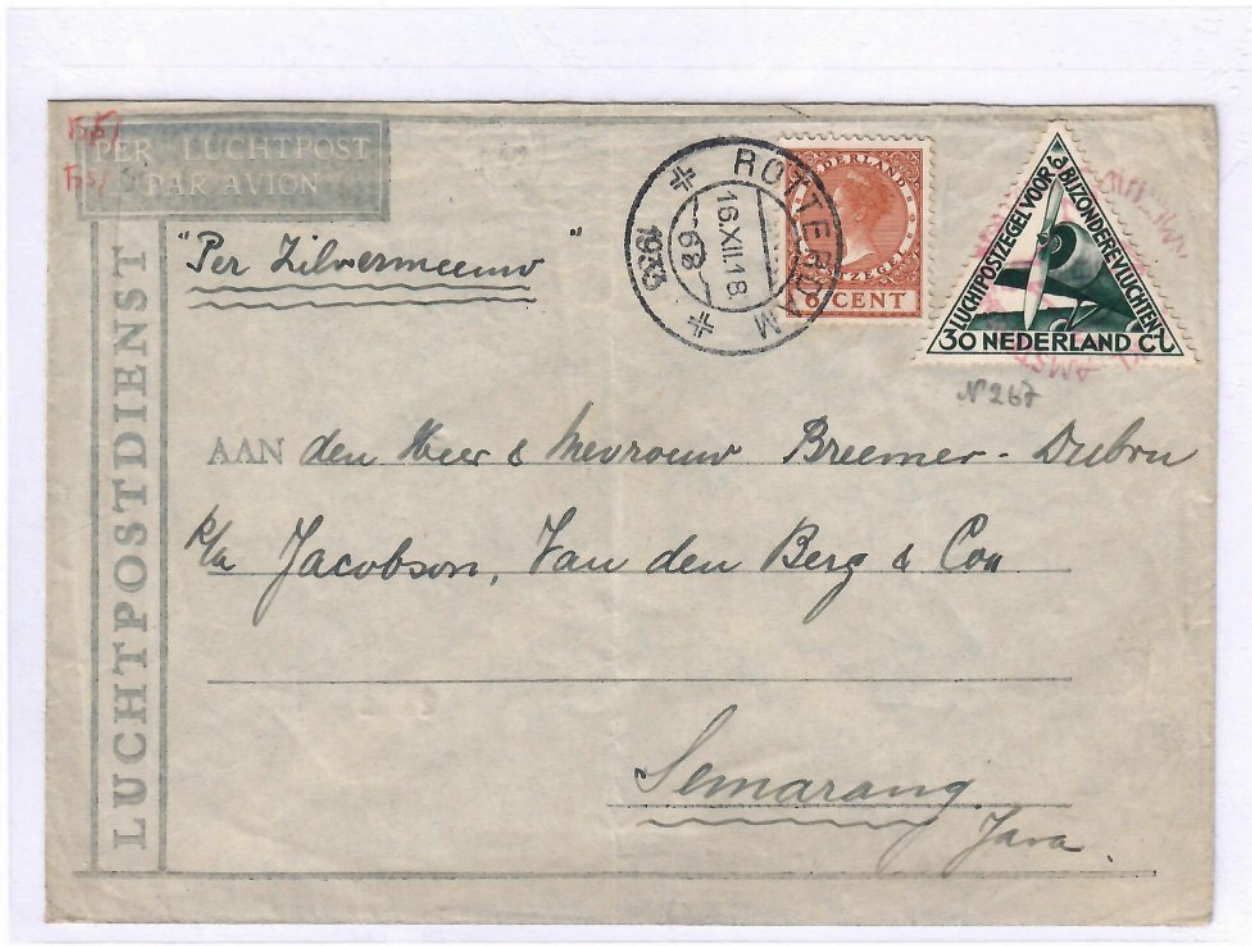 PER LUCHTPOST
PAR AVION
LUCHTPOSTDIENST
"Per Zilvermeeuw"
ROTTERDAM
16.XII.18
68
1933
NEDERLAND
POSTZEGEL
6 CENT
LUCHTPOSTZEGEL VOOR
BIJZONDERE VLUCHTEN
30 NEDERLAND Ct
No 267
AAN den Heer & Mevrouw Breemer - Dubru
p/a Jacobson, Van den Berg & Coo
Semarang
Java.